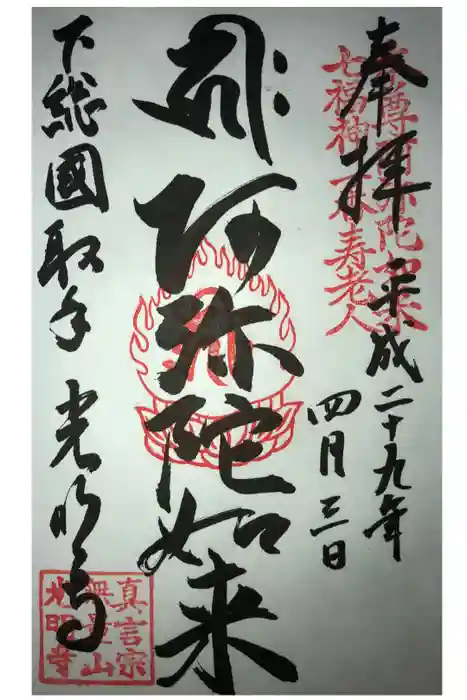 奉拝
平成二十九年
四月三日
七福神 寿老人
阿弥陀如来
下総國取手 光明寺
真言宗
無量山
光明寺